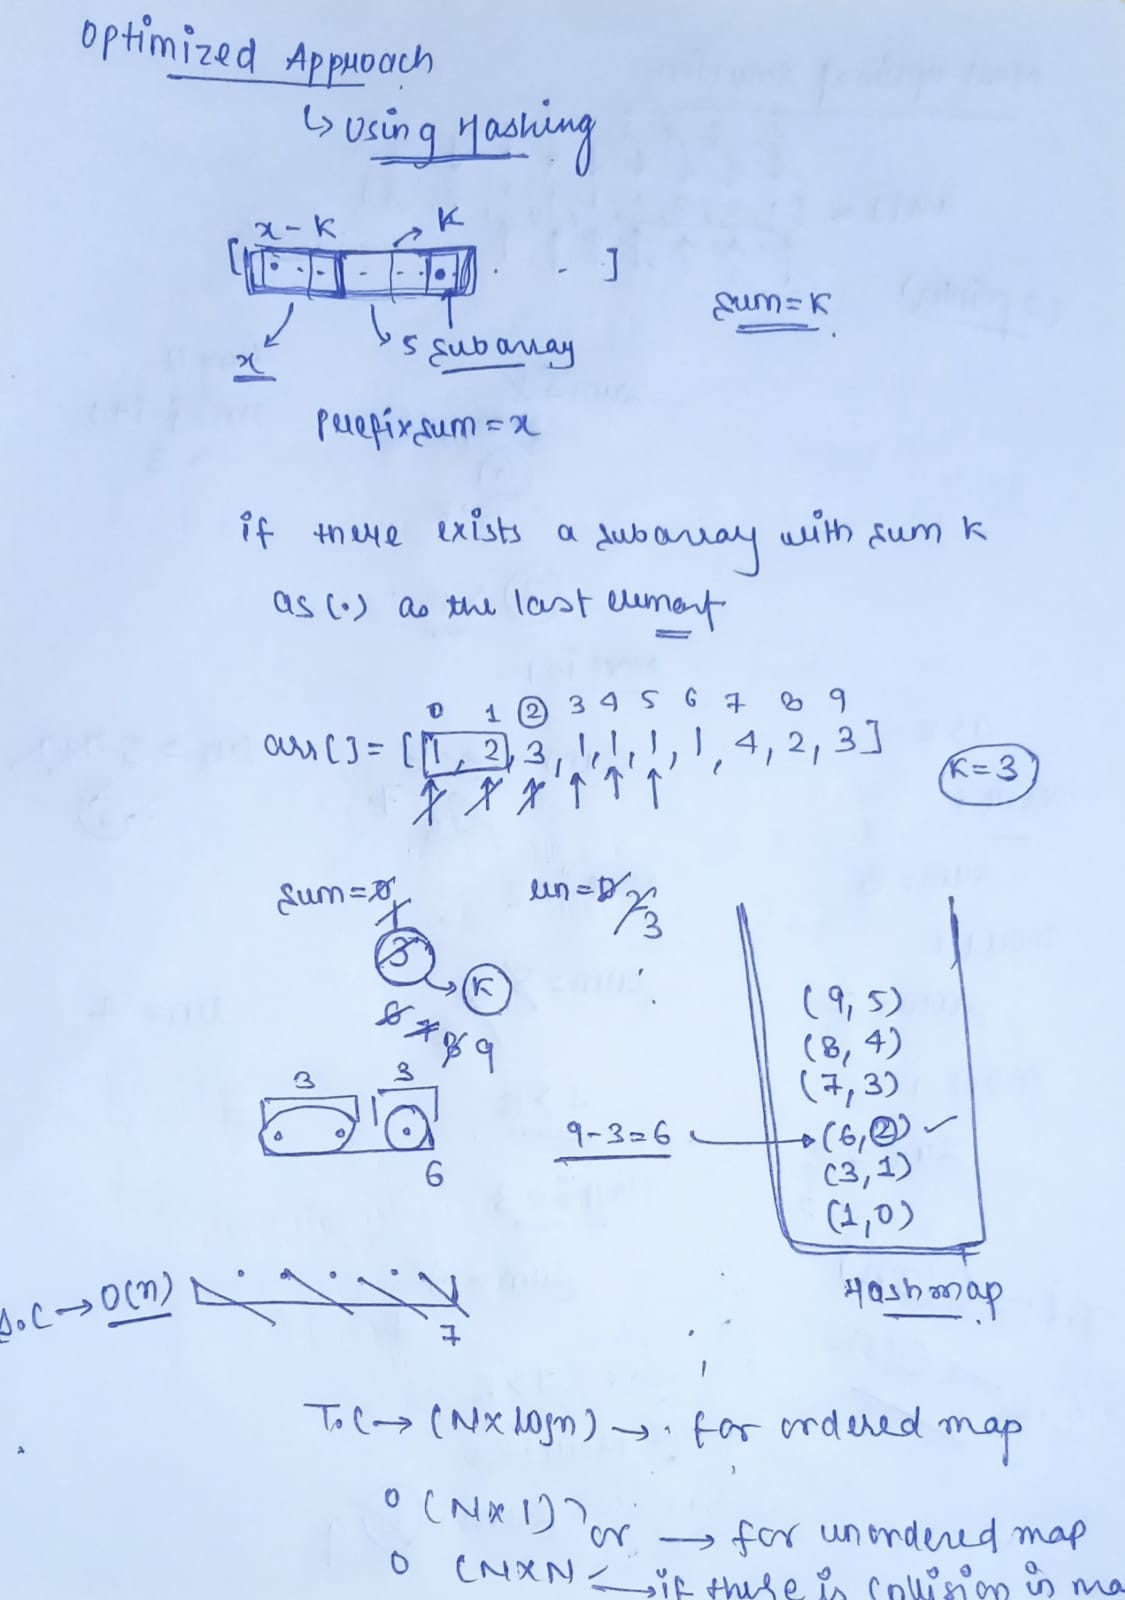 Optimized Approach
↳ Using Hashing
x - K K
[ . . - - - . . . - ]
sum = K
x
↳ s subarray
prefix sum = x
if there exists a subarray with sum K
as (.) as the last element
0 1 2 3 4 5 6 7 8 9
arr[] = [1, 2, 3, 1, 1, 1, 1, 4, 2, 3]
K = 3
sum = 0 len = 0 2
1 3
3
K
6 7 8 9
(9, 5)
(8, 4)
(7, 3)
3 3
9 - 3 = 6 → (6, 2) ✓
6
(3, 1)
(1, 0)
Hashmap
S.C → O(n)
7
T.C → (N x logn) → for ordered map
O (N x 1) or → for unordered map
O (N x N → if there is collision in ma